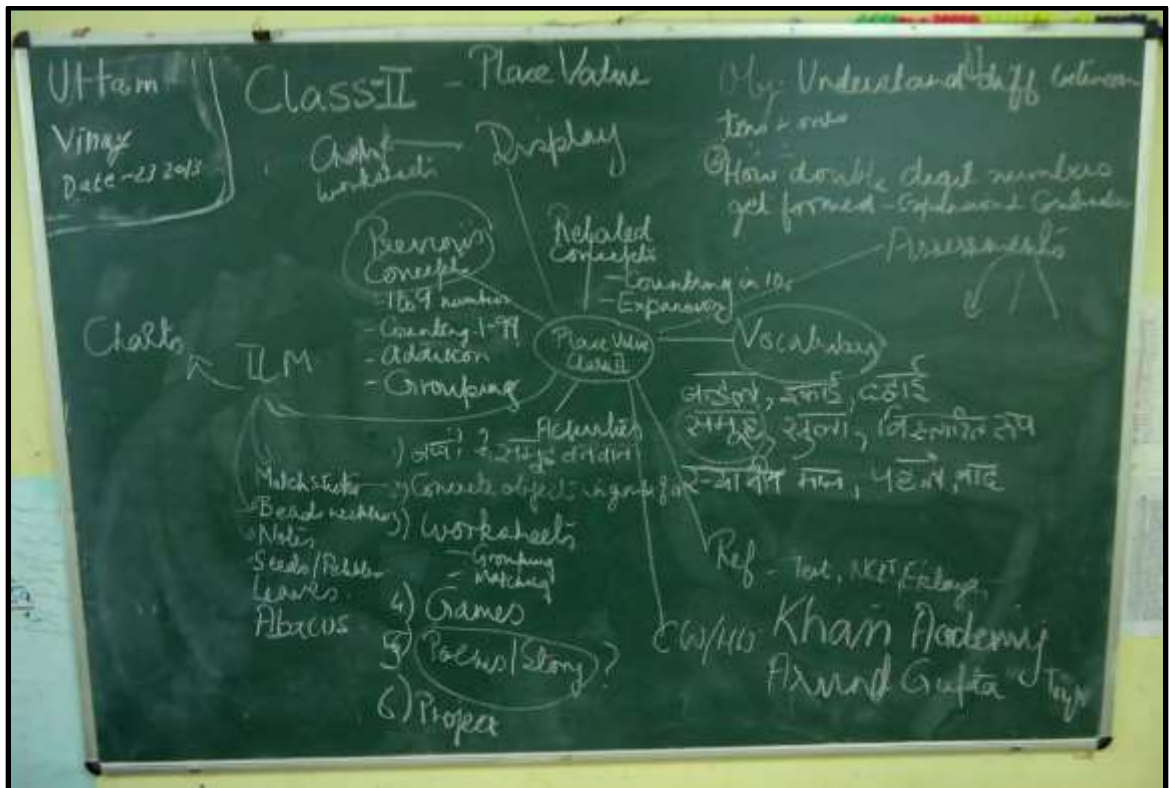 Uttam
Vinay
Date - 23 2013
Class-II - Place Value
Understand diff between
tens & ones
② How double digit numbers
get formed - Expansion &
Display
Chart
worksheets
Previous
Concept
- 1 to 9 number
- Counting 1-99
- Addition
- Grouping
Related
Concepts
- Counting in 10s
- Expansion
Assessments
Place Value
Class II
Vocabulary
बण्डल, इकाई, दहाई
समूह, खुला, विस्तारित रूप
स्थानीय मान, पहले, बाद
Charts
TLM
Matchsticks
Bead necklace
Notes
Seeds/Pebbles
Leaves
Abacus
Activities
1) समूह बनवाना
2) Concrete objects in group of
3) Worksheets
- Grouping
- Matching
4) Games
5) Poems/Story ?
6) Project
CW/HW
Ref - Text,
Khan Academy
Arvind Gupta Toys